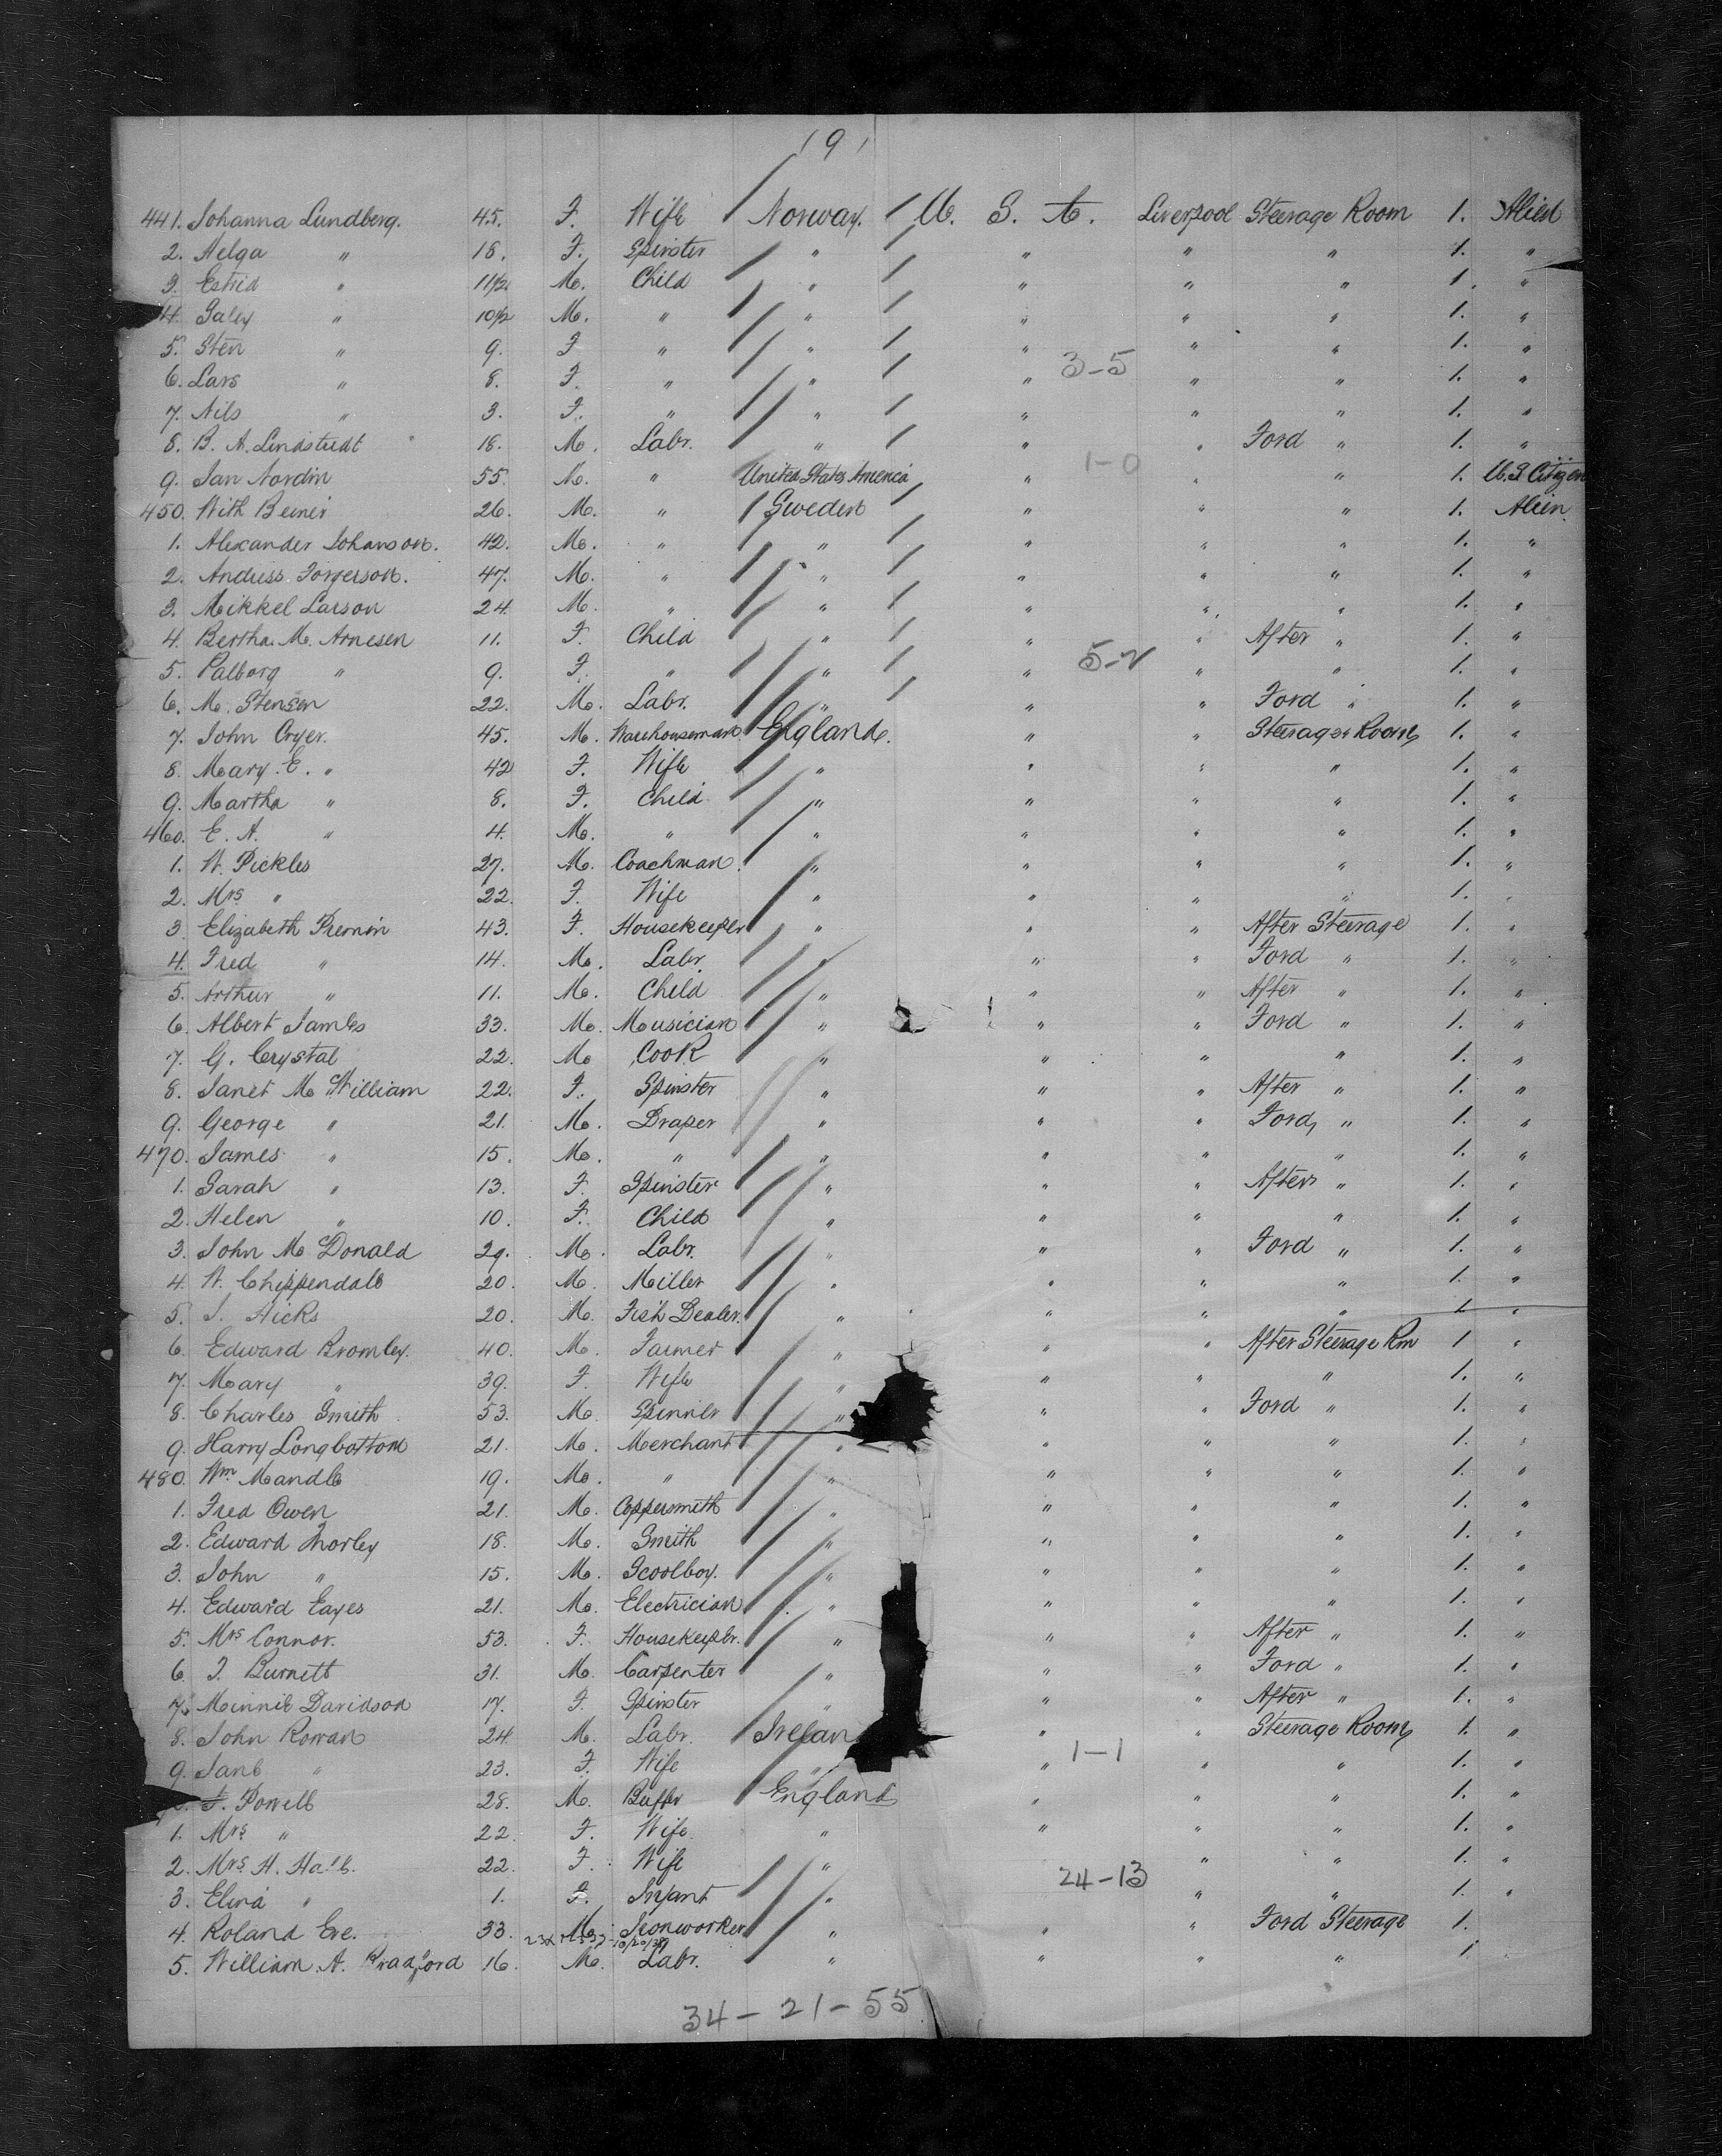 191
441. Johanna Lundberg. 45. F. Wife Norway. U. S. A. Liverpool Steerage Room 1. Alien
2. Helga " 18. F. Spinster " " " " 1. "
3. Estrid " 11 1/2 M. Child " " " " 1. "
4. Saley " 10 1/2 M. " " " " " 1. "
5. Sten " 9. F " " " " " 1. "
6. Lars " 8. F. " " " 3-5 " " 1. "
7. Nils " 3. F. " " " " " 1. "
8. B. A. Lindstedt 18. M. Labr. " " " Ford " 1. "
9. Jan Nordin 55. M. " United States America " 1-0 " " 1. U.S Citizen
450. With Beiner 26. M. " Sweden " " " 1. Alien.
1. Alexander Johanson. 42. M. " " " " " 1. "
2. Andress Torgerson. 47. M. " " " " " 1. "
3. Mikkel Larson 24. M. " " " " " 1. "
4. Bertha. M. Arnesen 11. F. Child " " " After " 1. "
5. Palborg " 9. F. " " " 5-2 " " 1. "
6. M. Stensen 22. M. Labr. " " " Ford " 1. "
7. John Cryer. 45. M. Warehouseman England. " " Steerage Room 1. "
8. Mary. E. " 42 F. Wife " " " " 1. "
9. Martha " 8. F. Child " " " " 1. "
460. E. A. " 4. M. " " " " " 1. "
1. W. Pickles 27. M. Coachman. " " " " 1. "
2. Mrs " 22. F. Wife " " " " 1. "
3. Elizabeth Firemin 43. F. Housekeeper " " " After Steerage 1. "
4. Fred " 14. M. Labr. " " " Ford " 1. "
5. Arthur " 11. M. Child " " " After " 1. "
6. Albert James 33. M. Musician " " " Ford " 1. "
7. G. Crystal 22. M Cook " " " " 1. "
8. Janet Mc William 22. F. Spinster " " " After " 1. "
9. George " 21. M. Draper " " " Ford " 1. "
470. James " 15. M. " " " " " 1. "
1. Sarah " 13. F. Spinster " " " After " 1. "
2. Helen " 10. F. Child " " " " 1. "
3. John Mc Donald 29. M. Labr. " " " Ford " 1. "
4. W. Chippendale 20. M. Miller " " " " 1. "
5. J. Hicks 20. M. Fish Dealer. " " " " 1. "
6. Edward Bromley. 40. M. Farmer " " " After Steerage Rm 1 "
7. Mary " 39. F. Wife " " " " 1. "
8. Charles Smith 53. M. Spinner " " " Ford " 1. "
9. Harry Longbottom 21. M. Merchant " " " " 1. "
480. Wm Mandle 19. M. " " " " " 1. "
1. Fred Owen 21. M. Coppersmith " " " " 1. "
2. Edward Morley 18. M. Smith " " " " 1. "
3. John " 15. M. Scoolboy. " " " " 1. "
4. Edward Eayes 21. M. Electrician " " " " 1. "
5. Mrs Connor. 53. F. Housekeeper. " " " After " 1. "
6. J. Burnett 31. M. Carpenter " " " Ford " 1. "
7. Minnie Davidson 17. F. Spinster " " " After " 1. "
8. John Rowan 24. M. Labr. Irelan " " Steerage Room 1. "
9. Jane " 23. F. Wife " " 1-1 " " 1. "
F. Powell 28. M. Buffer England " " " 1. "
1. Mrs " 22. F. Wife. " " " " 1. "
2. Mrs H. Hale. 22. F. Wife " " " 1. "
3. Elira " 1. F. Infant " 24-13 " " 1. "
4. Roland Eve. 33. M. Ironworker " " " Ford Steerage 1.
5. William. A. Bradford 16. M. Labr. " " " " 1.
34-21-55